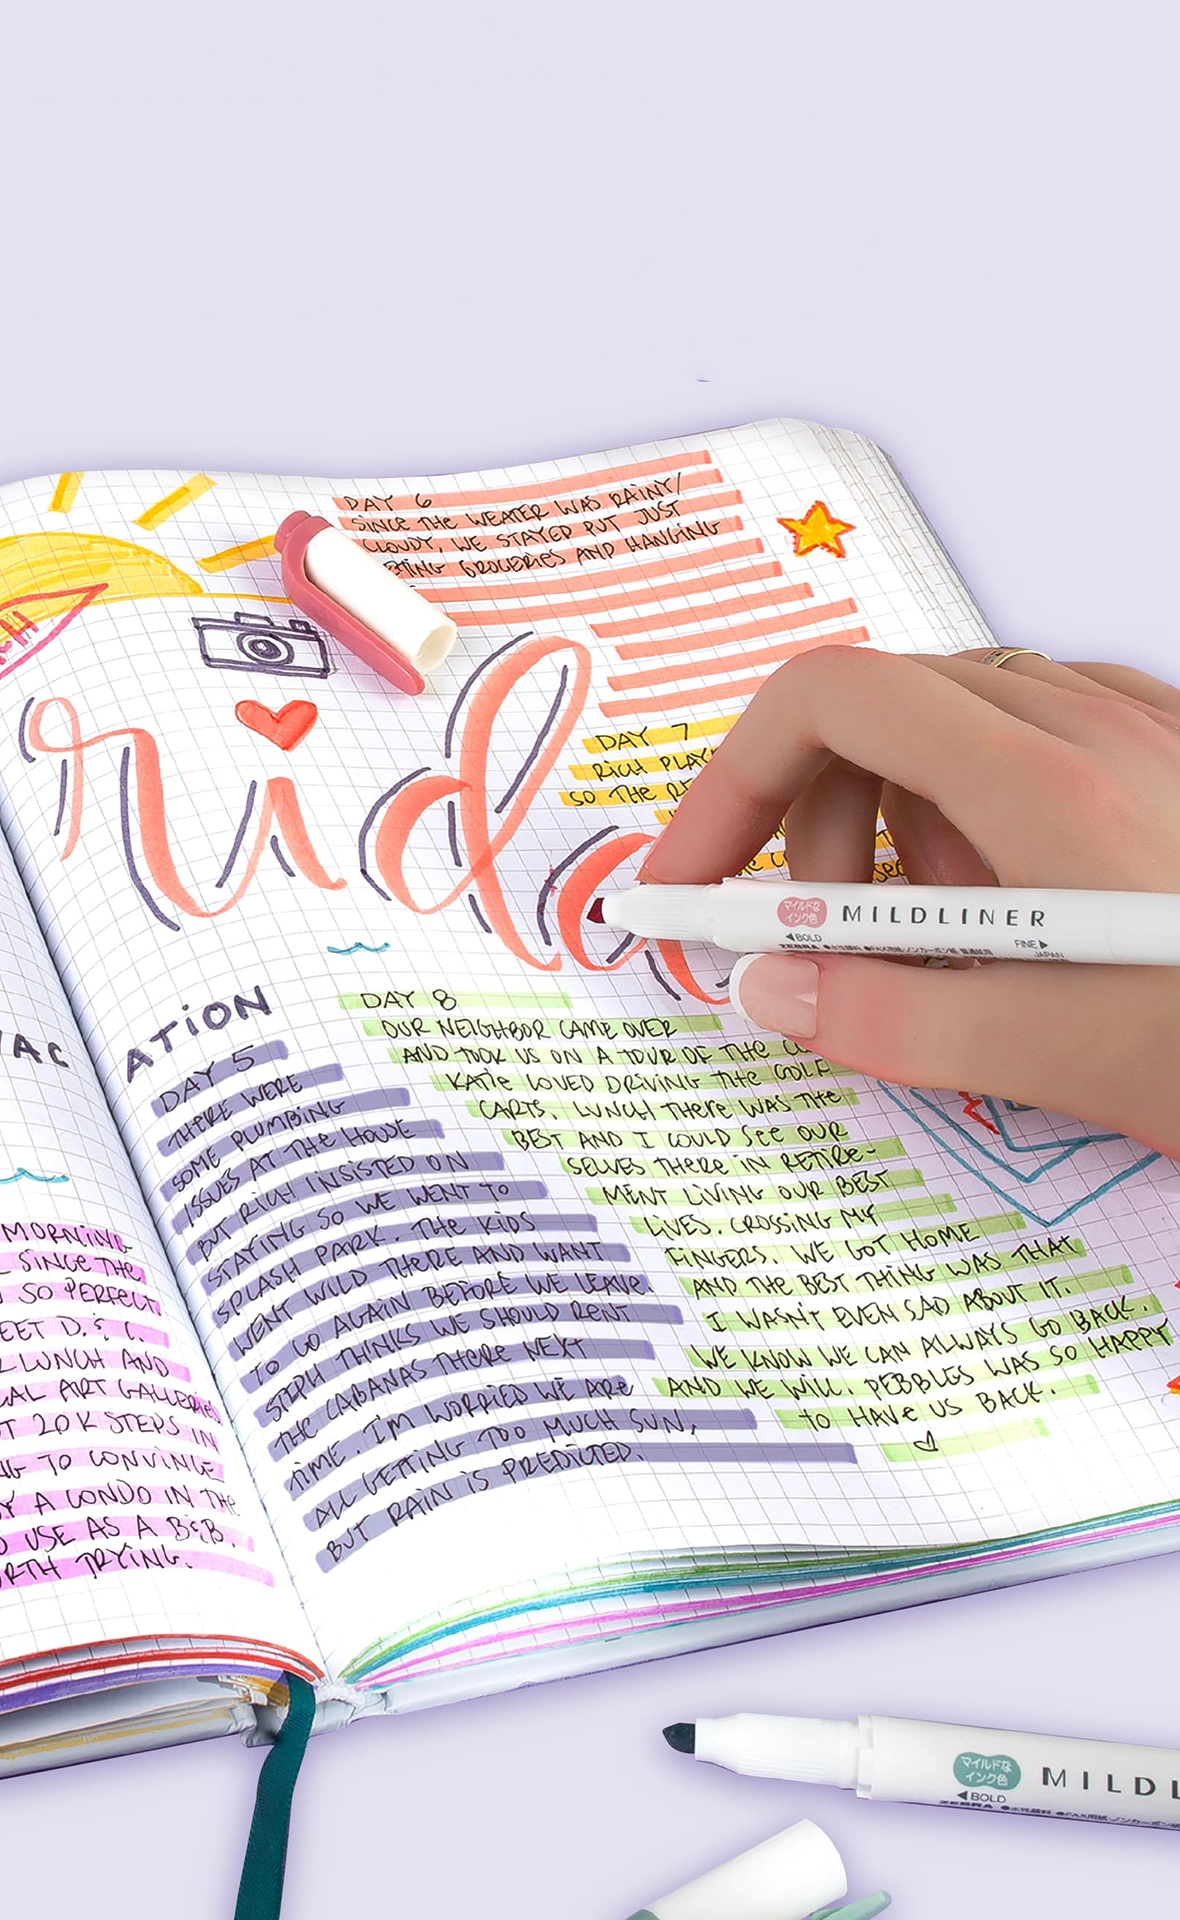 DAY 6
SINCE THE WEATER WAS RAINY/
CLOUDY, WE STAYED PUT JUST
GROCERIES AND HANGING
rida
DAY 7
RICH
SO THE
ATION
VAC
DAY 5
THERE WERE
SOME PLUMBING
ISSUES AT THE HOUSE
BUT RICH INSISTED ON
STAYING SO WE WENT TO
SPLASH PARK. THE KIDS
WENT WILD THERE AND WANT
TO GO AGAIN BEFORE WE LEAVE.
STEPH THINKS WE SHOULD RENT
THE CABANAS THERE NEXT
TIME. I'M WORRIED WE ARE
ALL GETTING TOO MUCH SUN,
BUT RAIN IS PREDICTED.
DAY 8
OUR NEIGHBOR CAME OVER
AND TOOK US ON A TOUR OF THE
KATIE LOVED DRIVING THE GOLF
CARTS. LUNCH THERE WAS THE
BEST AND I COULD SEE OUR
SELVES THERE IN RETIRE-
MENT LIVING OUR BEST
LIVES. CROSSING MY
FINGERS. WE GOT HOME
AND THE BEST THING WAS THAT
I WASN'T EVEN SAD ABOUT IT.
WE KNOW WE CAN ALWAYS GO BACK.
AND WE WILL. PEBBLES WAS SO HAPPY
TO HAVE US BACK.
MORNING
SINCE THE
SO PERFECT
D. & C.
LUNCH AND
ART GALLERIES
20K STEPS IN
TO CONVINCE
A CONDO IN THE
USE AS A B&B.
TRYING.
マイルドな
インク色
MILDLINER
◀BOLD
FINE▶
ZEBRA
JAPAN
マイルドな
インク色
MILDL
◀BOLD
ZEBRA